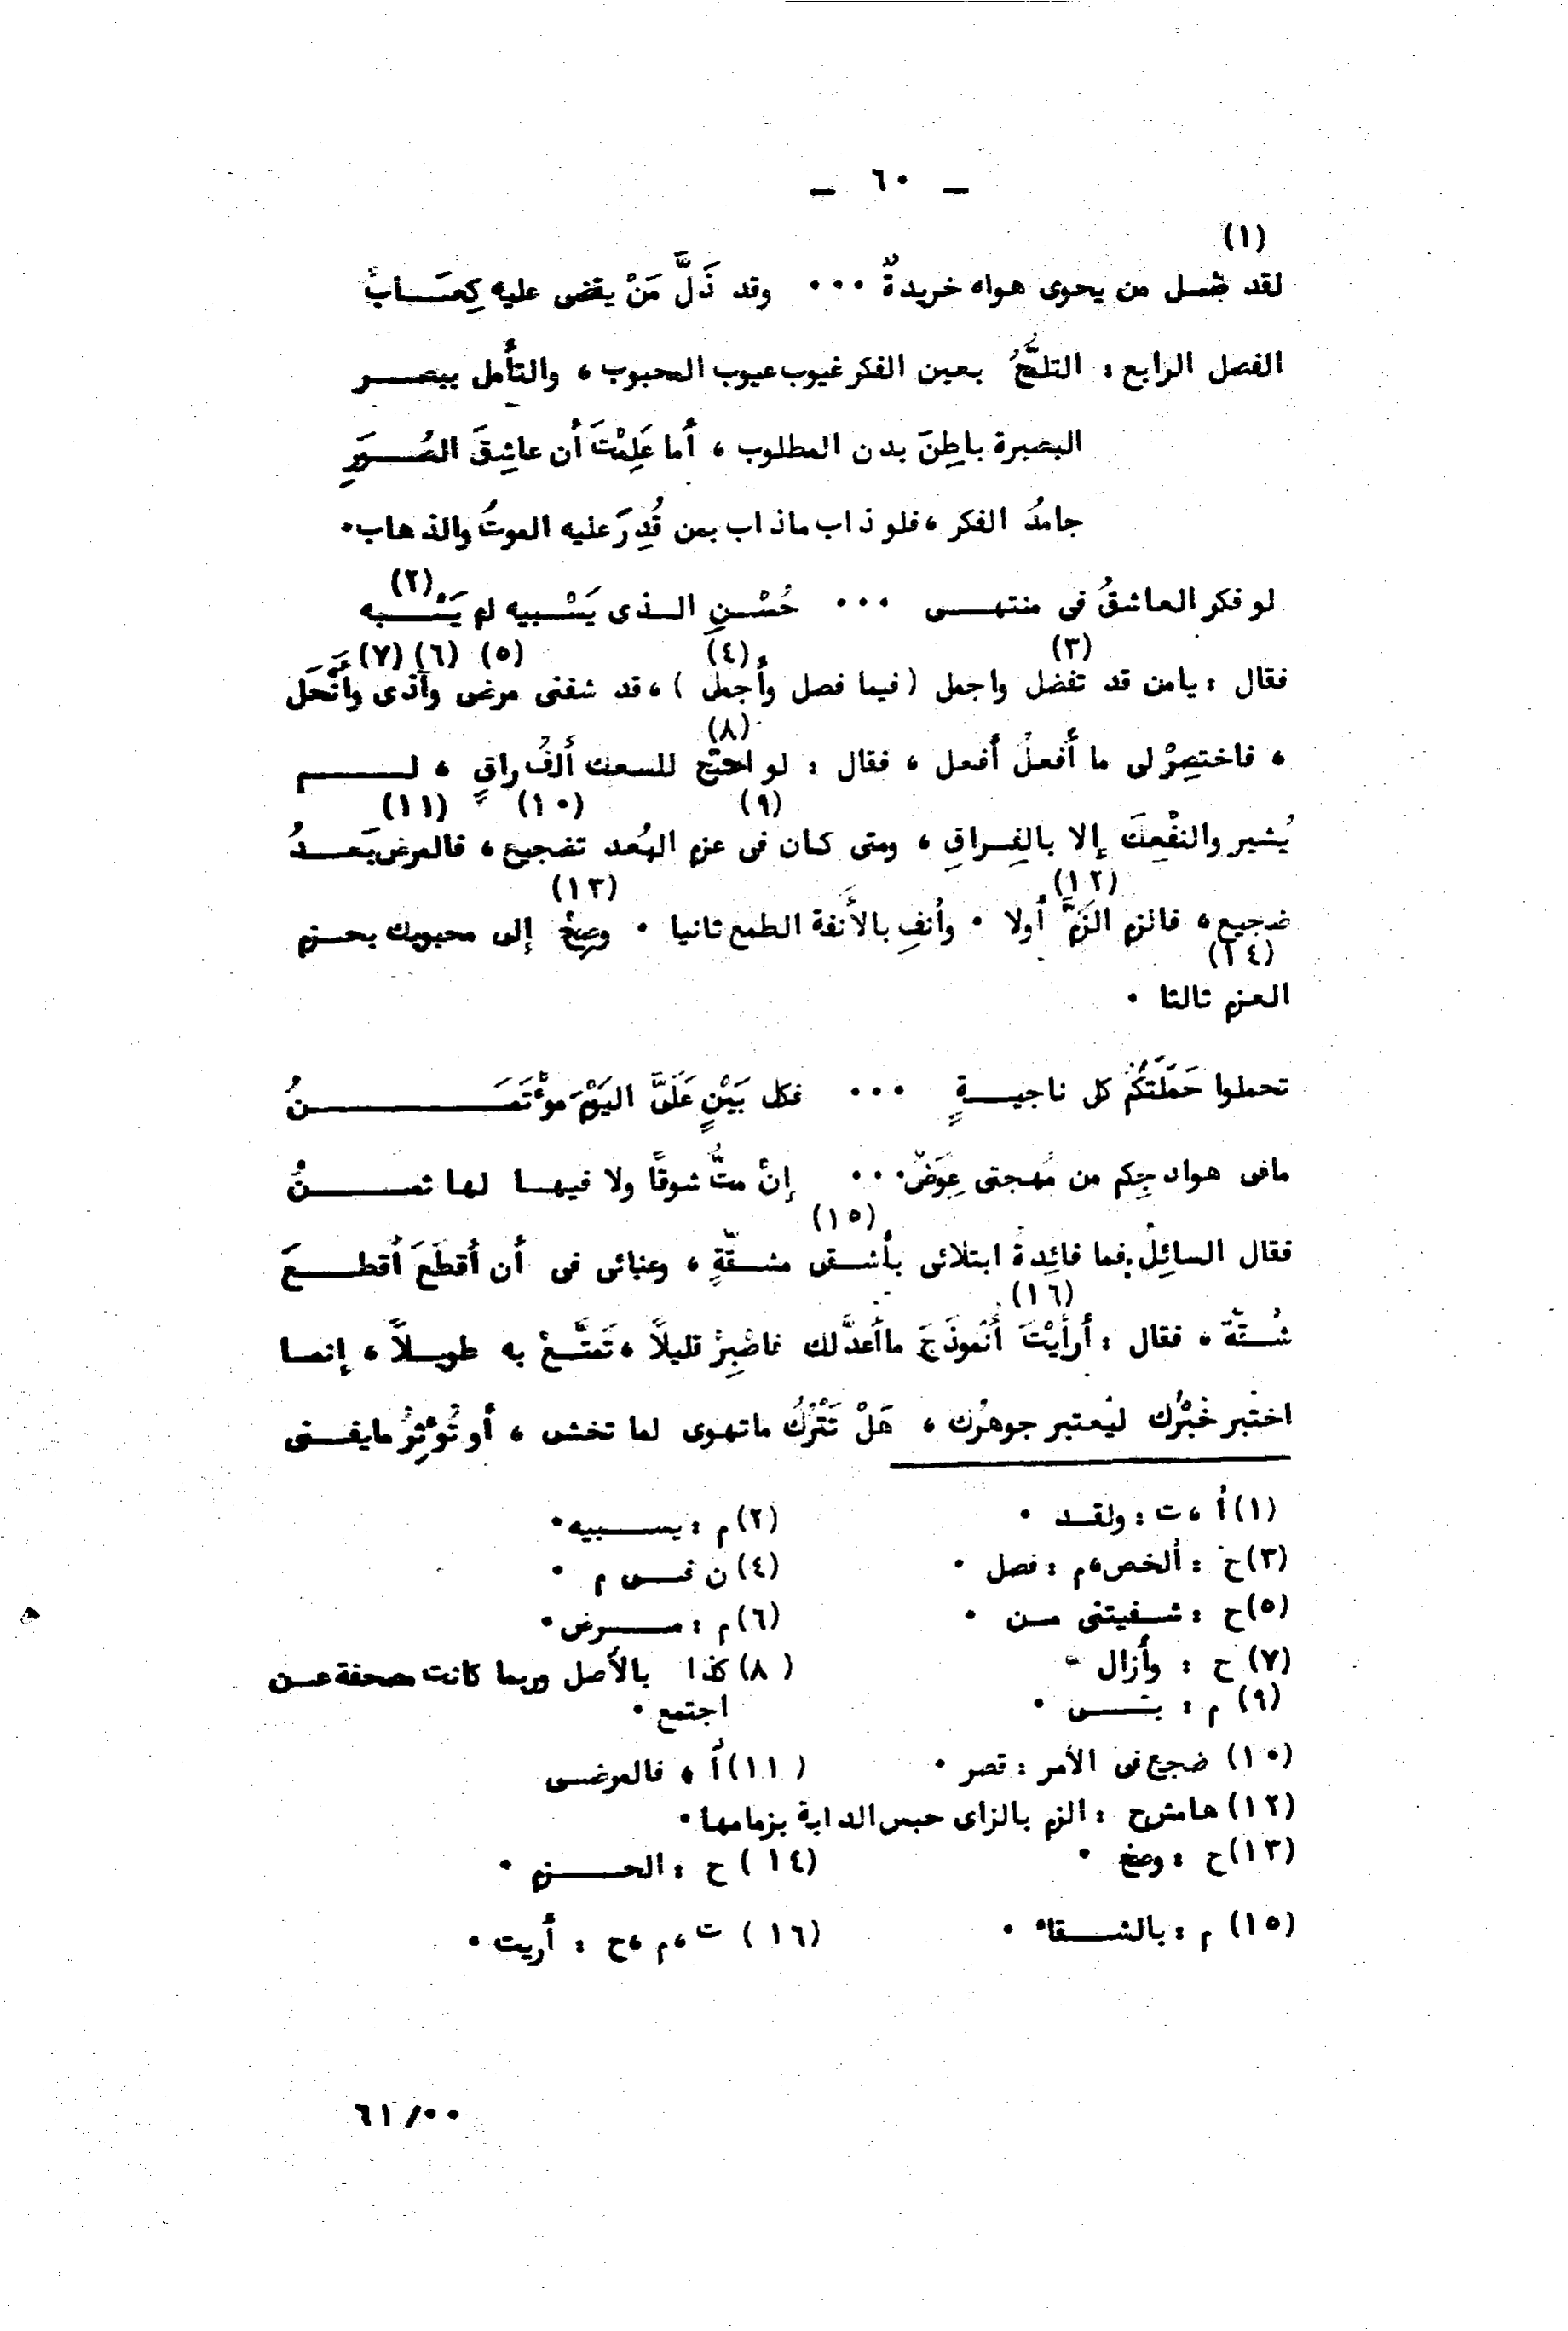 ـ ٦٠ ـ
(١)
لقد ضـل من يحوى هواه خريدةٌ ... وقد ذَلَّ مَنْ يقضى عليه كِعَـابُ
الفصل الرابع : التلمُّحُ بعين الفكر غيوب عيوب المحبوب ، والتأمل ببصـر
البصيرة باطِنَ بدن المطلوب ، أما عَلِمْتَ أن عاشِقَ الصُـوَرِ
جامدُ الفكر ، فلو ذاب ماذاب بمن قُدِرَ عليه الموتُ والذهاب .
(٢)
لو فكر العاشقُ فى منتهـى ... حُسْـنِ الـذى يَسْـبيه لم يَسْـبه
(٣) (٤) (٥) (٦) (٧)
فقال : يامن قد تفضل واجمل (فيما فصل وأجمل ) ، قد شفنى مرض وآذى وأنْحَلَ
، فاختصِرْ لى ما أفعلُ أفعل ، فقال : لو احتج للسعك ألفُ راقٍ ، لـم
(٨)
(٩) (١٠) (١١)
يُشير والنفْعِكَ إلا بالفِـراقِ ، ومتى كـان فى عزم البُعد تضجيع ، فالمرض بَعـدُ
(١٢) (١٣)
ضجيع ، فالزم الزَمَّ أولا . وأنفِ بالأَنفة الطمع ثانيا . وصِخْ إلى محبوبك بحـزم
(١٤)
العزم ثالثا .
تحملوا حَمَلَتكُمْ كل ناجيـةٍ ... فكل بَيْنٍ عَلَىَّ اليَوْمَ موْتَمَـنُ
مافى هوادجِكم من مُهجتى عِوَضٌ ... إنْ متُّ شوقًا ولا فيهـا لها ثمـنُ
(١٥)
فقال السائِلُ : فما فائِدة ابتلائى بأشـقى مشـقّةٍ ، وعنائى فى أن أقطَعَ أقطـعَ
(١٦)
شُـقّة ، فقال : أرأَيْتَ أنَموذَجَ ماأعدَّ لك فاصْبِرْ قليلاً ، تَمَتَّـعْ به طويـلاً ، إنمـا
اختبر خُبْرُك ليُعتبر جوهرُك ، هَلْ تَتْرُكُ ماتهوى لما تخشى ، أو تُؤْثِرُ مايفـنى
(١) أ ، ت : ولقـد .
(٢) م : يسـبيه .
(٣) ح : ألخص ، م : فصل .
(٤) ن قـس م .
(٥) ح : شـفيتنى مـن .
(٦) م : مـرض .
(٧) ح : وأزال
(٨) كذا بالأصل وربما كانت مصحفة عـن
اجتمع .
(٩) م : بتـس .
(١٠) ضجع فى الأمر : قصر .
(١١) أ ، فالمرضـى
(١٢) هامش ح : الزم بالزاى حبس الدابة بزمامها .
(١٣) ح : وصخ .
(١٤) ح : الحـزم .
(١٥) م : بالشـقاء .
(١٦) ت ، م ، ح : أريت .
٦١/٠٠